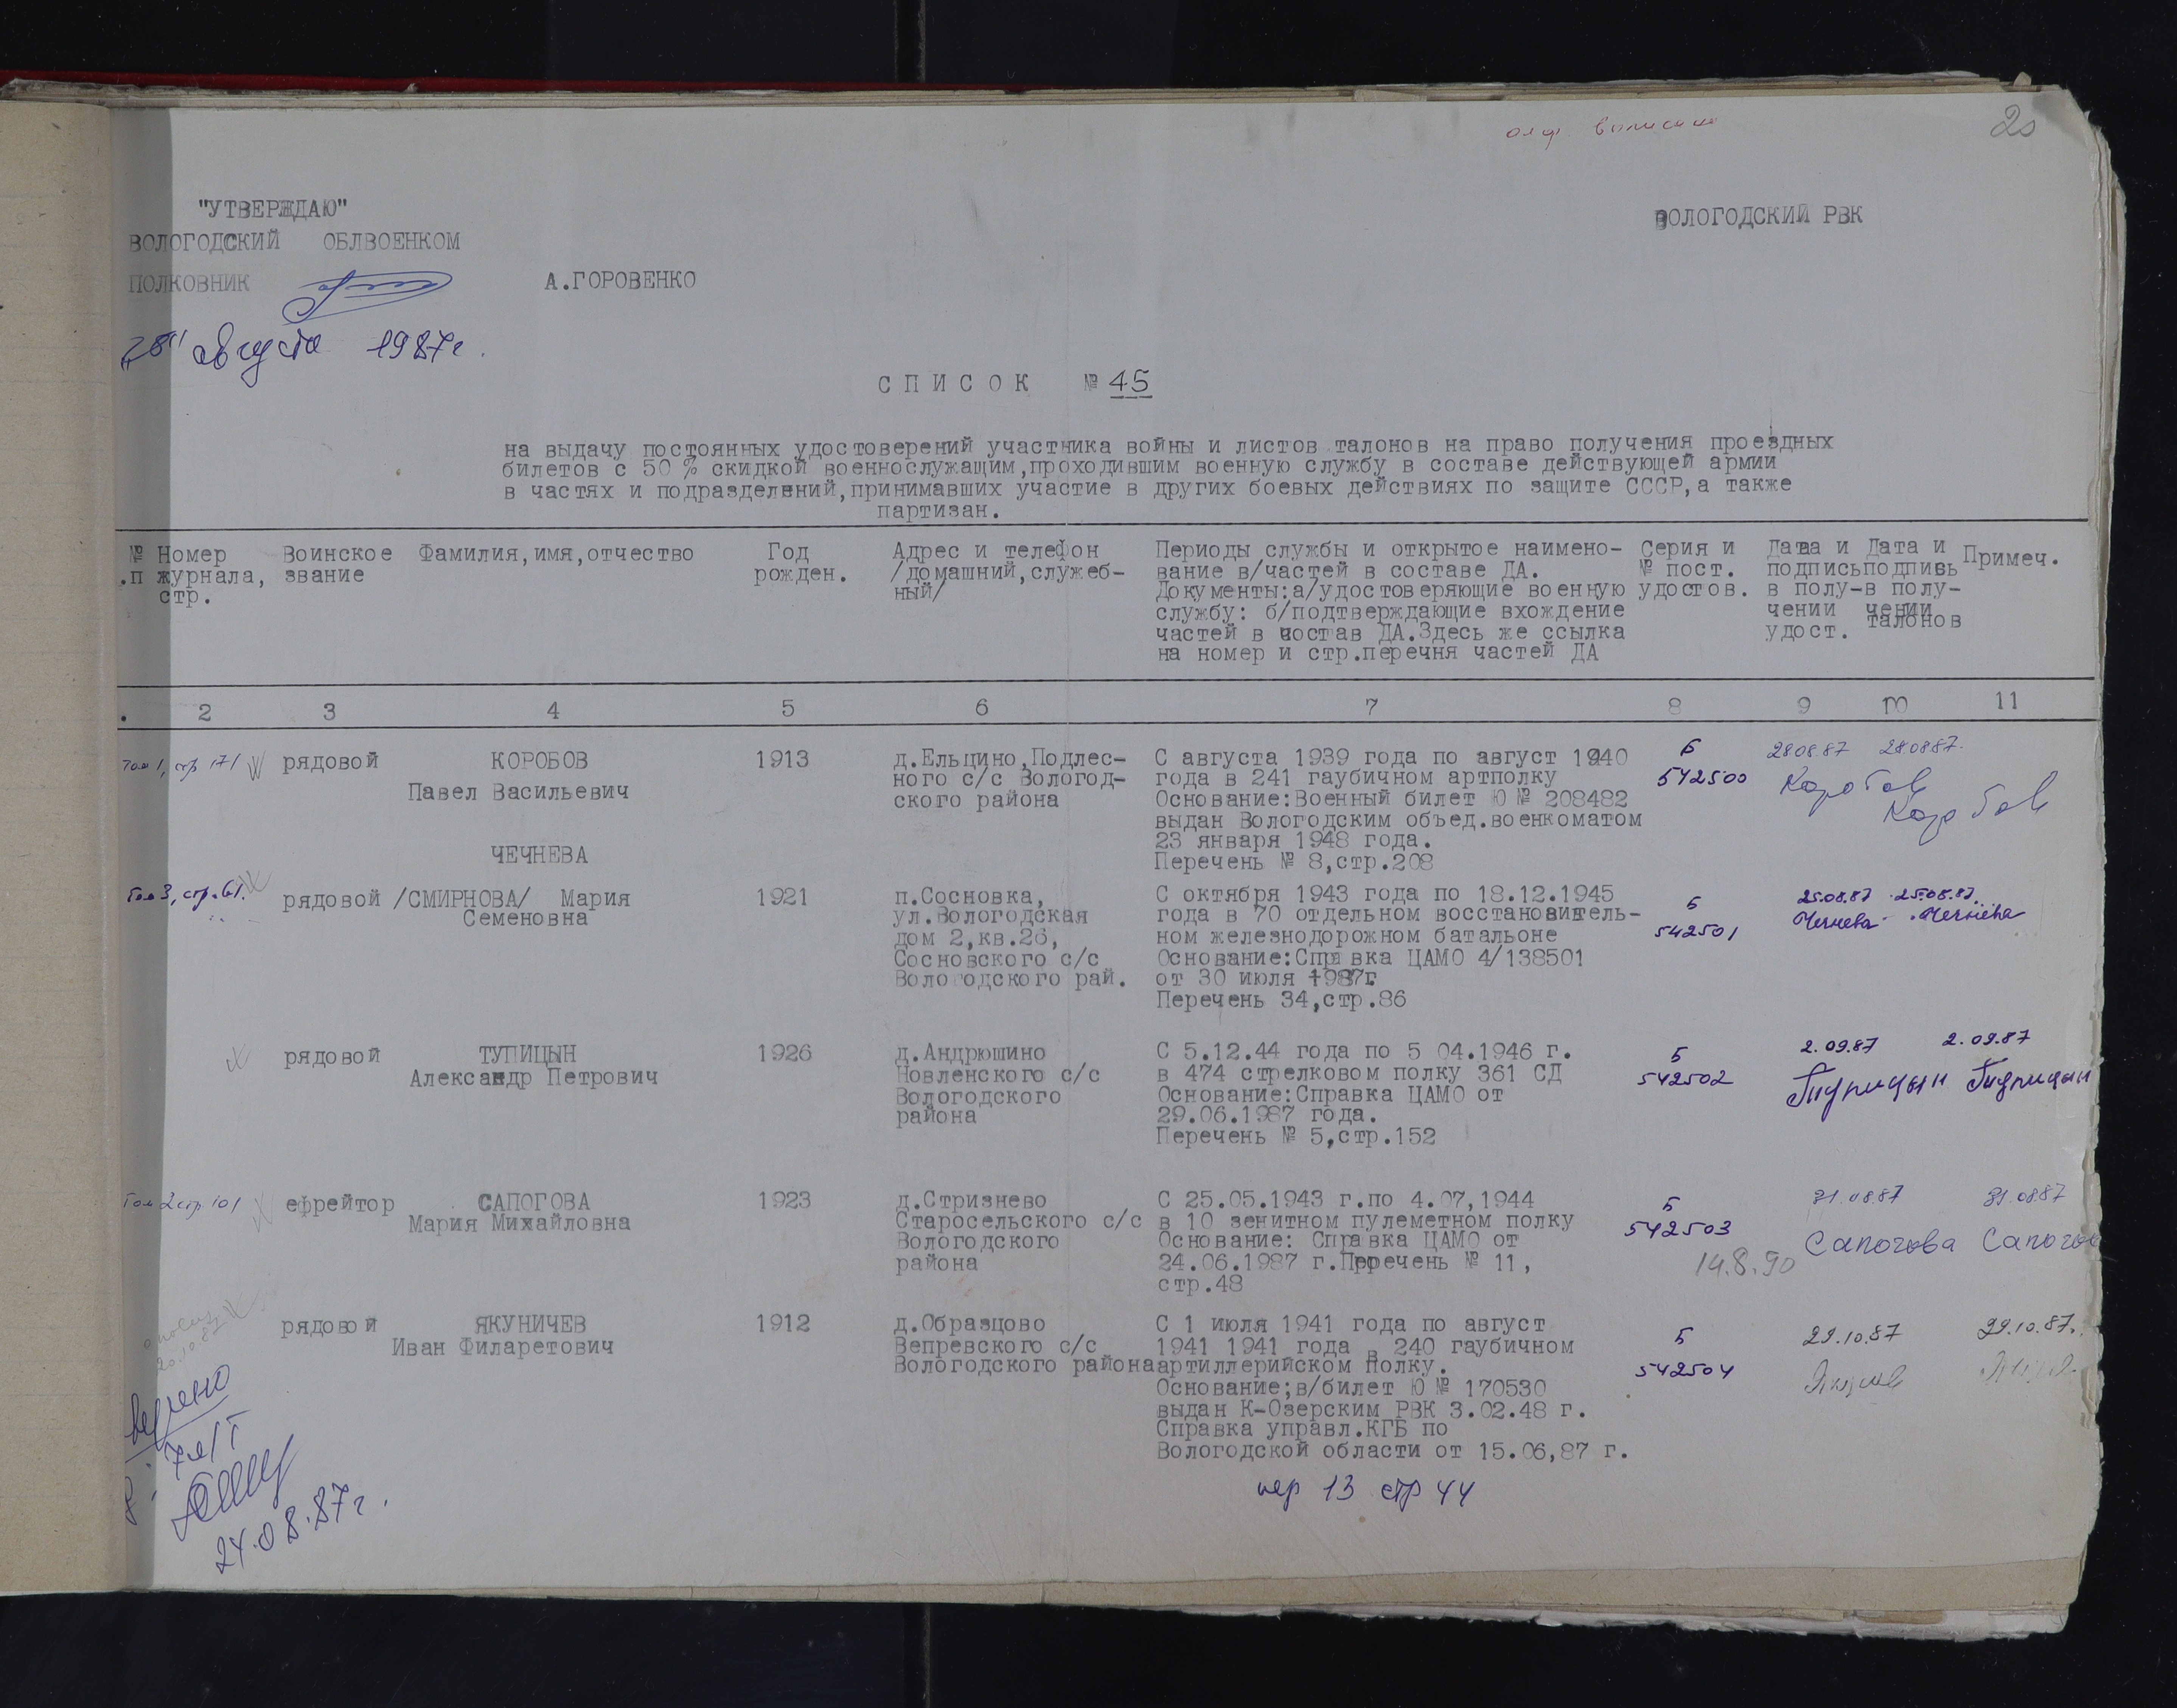 20
"УТВЕРЖДАЮ"
ВОЛОГОДСКИЙ ОБЛВОЕНКОМ
ПОЛКОВНИК А.ГОРОВЕНКО
"28" августа 1987г.
ВОЛОГОДСКИЙ РВК
СПИСОК № 45
на выдачу постоянных удостоверений участника войны и листов талонов на право получения проездных
билетов с 50 % скидкой военнослужащим,проходившим военную службу в составе действующей армии
в частях и подразделений,принимавших участие в других боевых действиях по защите СССР,а также
партизан.
№ .п
Номер
журнала,
стр.
Воинское
звание
Фамилия,имя,отчество
Год
рожден.
Адрес и телефон
/домашний,служеб-
ный/
Периоды службы и открытое наимено-
вание в/частей в составе ДА.
Документы:а/удостоверяющие военную
службу: б/подтверждающие вхождение
частей в состав ДА.Здесь же ссылка
на номер и стр.перечня частей ДА
Серия и
№ пост.
удостов.
Дата и
подпись
в полу-
чении
удост.
Дата и
подпивь
в полу-
чении
талонов
Примеч.
. 2 3 4 5 6 7 8 9 10 11
Том 1, стр 171
рядовой
КОРОБОВ
Павел Васильевич
1913
д.Ельцино,Подлес-
ного с/с Вологод-
ского района
С августа 1939 года по август 1940
года в 241 гаубичном артполку
Основание:Военный билет Ю № 208482
выдан Вологодским объед.военкоматом
23 января 1948 года.
Перечень № 8,стр.208
Б
542500
28.08.87 28.08.87.
Коробов
Коробов
Том 3, стр.61.
рядовой
ЧЕЧНЕВА
/СМИРНОВА/ Мария
Семеновна
1921
п.Сосновка,
ул.Вологодская
дом 2,кв.26,
Сосновского с/с
Вологодского рай.
С октября 1943 года по 18.12.1945
года в 70 отдельном восстановитель-
ном железнодорожном батальоне
Основание:Справка ЦАМО 4/138501
от 30 июля 1987г.
Перечень 34,стр.86
Б
542501
25.08.87 25.08.87.
Чечнева Чечнева
рядовой
ТУПИЦЫН
Александр Петрович
1926
д.Андрюшино
Новленского с/с
Вологодского
района
С 5.12.44 года по 5 04.1946 г.
в 474 стрелковом полку 361 СД
Основание:Справка ЦАМО от
29.06.1987 года.
Перечень № 5,стр.152
Б
542502
2.09.87 2.09.87
Тупицын Тупицын
Том 2 стр 101
ефрейтор
САПОГОВА
Мария Михайловна
1923
д.Стризнево
Старосельского с/с
Вологодского
района
С 25.05.1943 г.по 4.07,1944
в 10 зенитном пулеметном полку
Основание: Справка ЦАМО от
24.06.1987 г.Перечень № 11,
стр.48
Б
542503
14.8.90
31.08.87 31.08.87
Сапогова Сапогов
20.10.87
рядовой
ЯКУНИЧЕВ
Иван Филаретович
1912
д.Образцово
Вепревского с/с
Вологодского района
С 1 июля 1941 года по август
1941 1941 года в 240 гаубичном
артиллерийском полку.
Основание;в/билет Ю № 170530
выдан К-Озерским РВК 3.02.48 г.
Справка управл.КГБ по
Вологодской области от 15.06,87 г.
пер 13 стр 44
Б
542504
29.10.87 29.10.87.
24.08.87г.